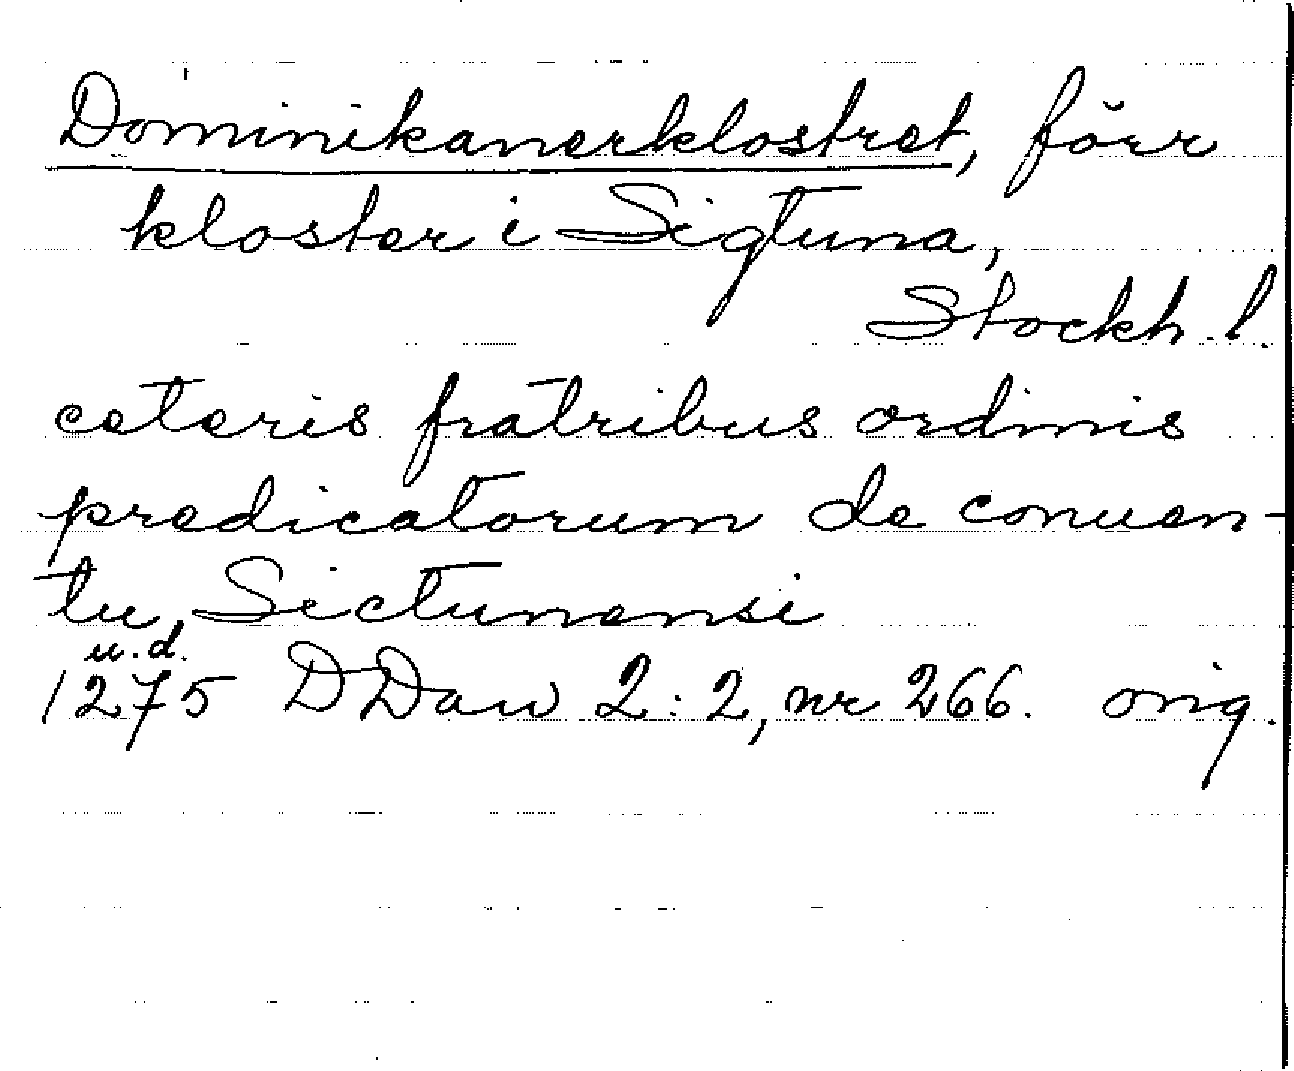 Dominikanerklostret, förr
kloster i Sigtuna,
Stockh. l.
ceteris fratribus ordinis
predicatorum de conuen-
tu Sictunensi
u.d.
1275 DDan 2:2, nr 266. orig.